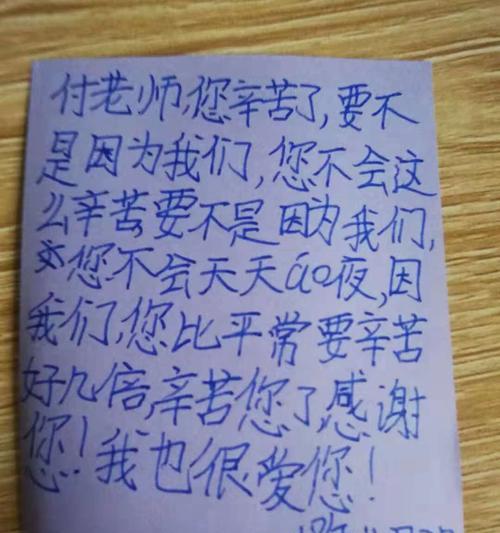 付老师,您辛苦了,要不
是因为我们,您不会这
么辛苦,要不是因为我们,
您不会天天áo夜,因
我们,您比平常要辛苦
好几倍,辛苦您了,感谢
您!我也很爱您!